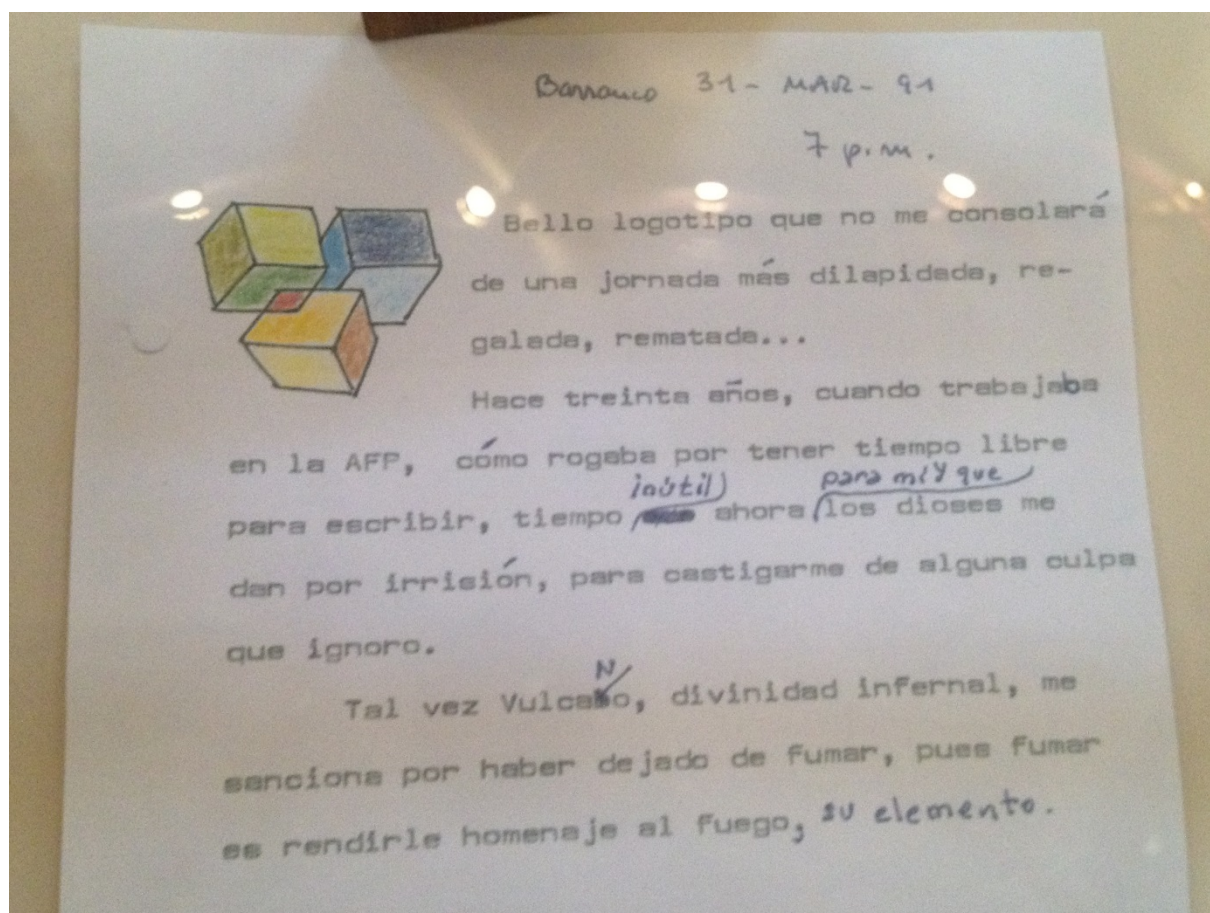 Barranco 31- MAR- 91
7 p.m.
Bello logotipo que no me consolará
de una jornada más dilapidada, re-
galada, rematada...
Hace treinta años, cuando trabajaba
en la AFP, cómo rogaba por tener tiempo libre
para escribir, tiempo inútil ahora para mí y que los dioses me
dan por irrisión, para castigarme de alguna culpa
que ignoro.
Tal vez VulcaNo, divinidad infernal, me
sanciona por haber dejado de fumar, pues fumar
es rendirle homenaje al fuego, su elemento.